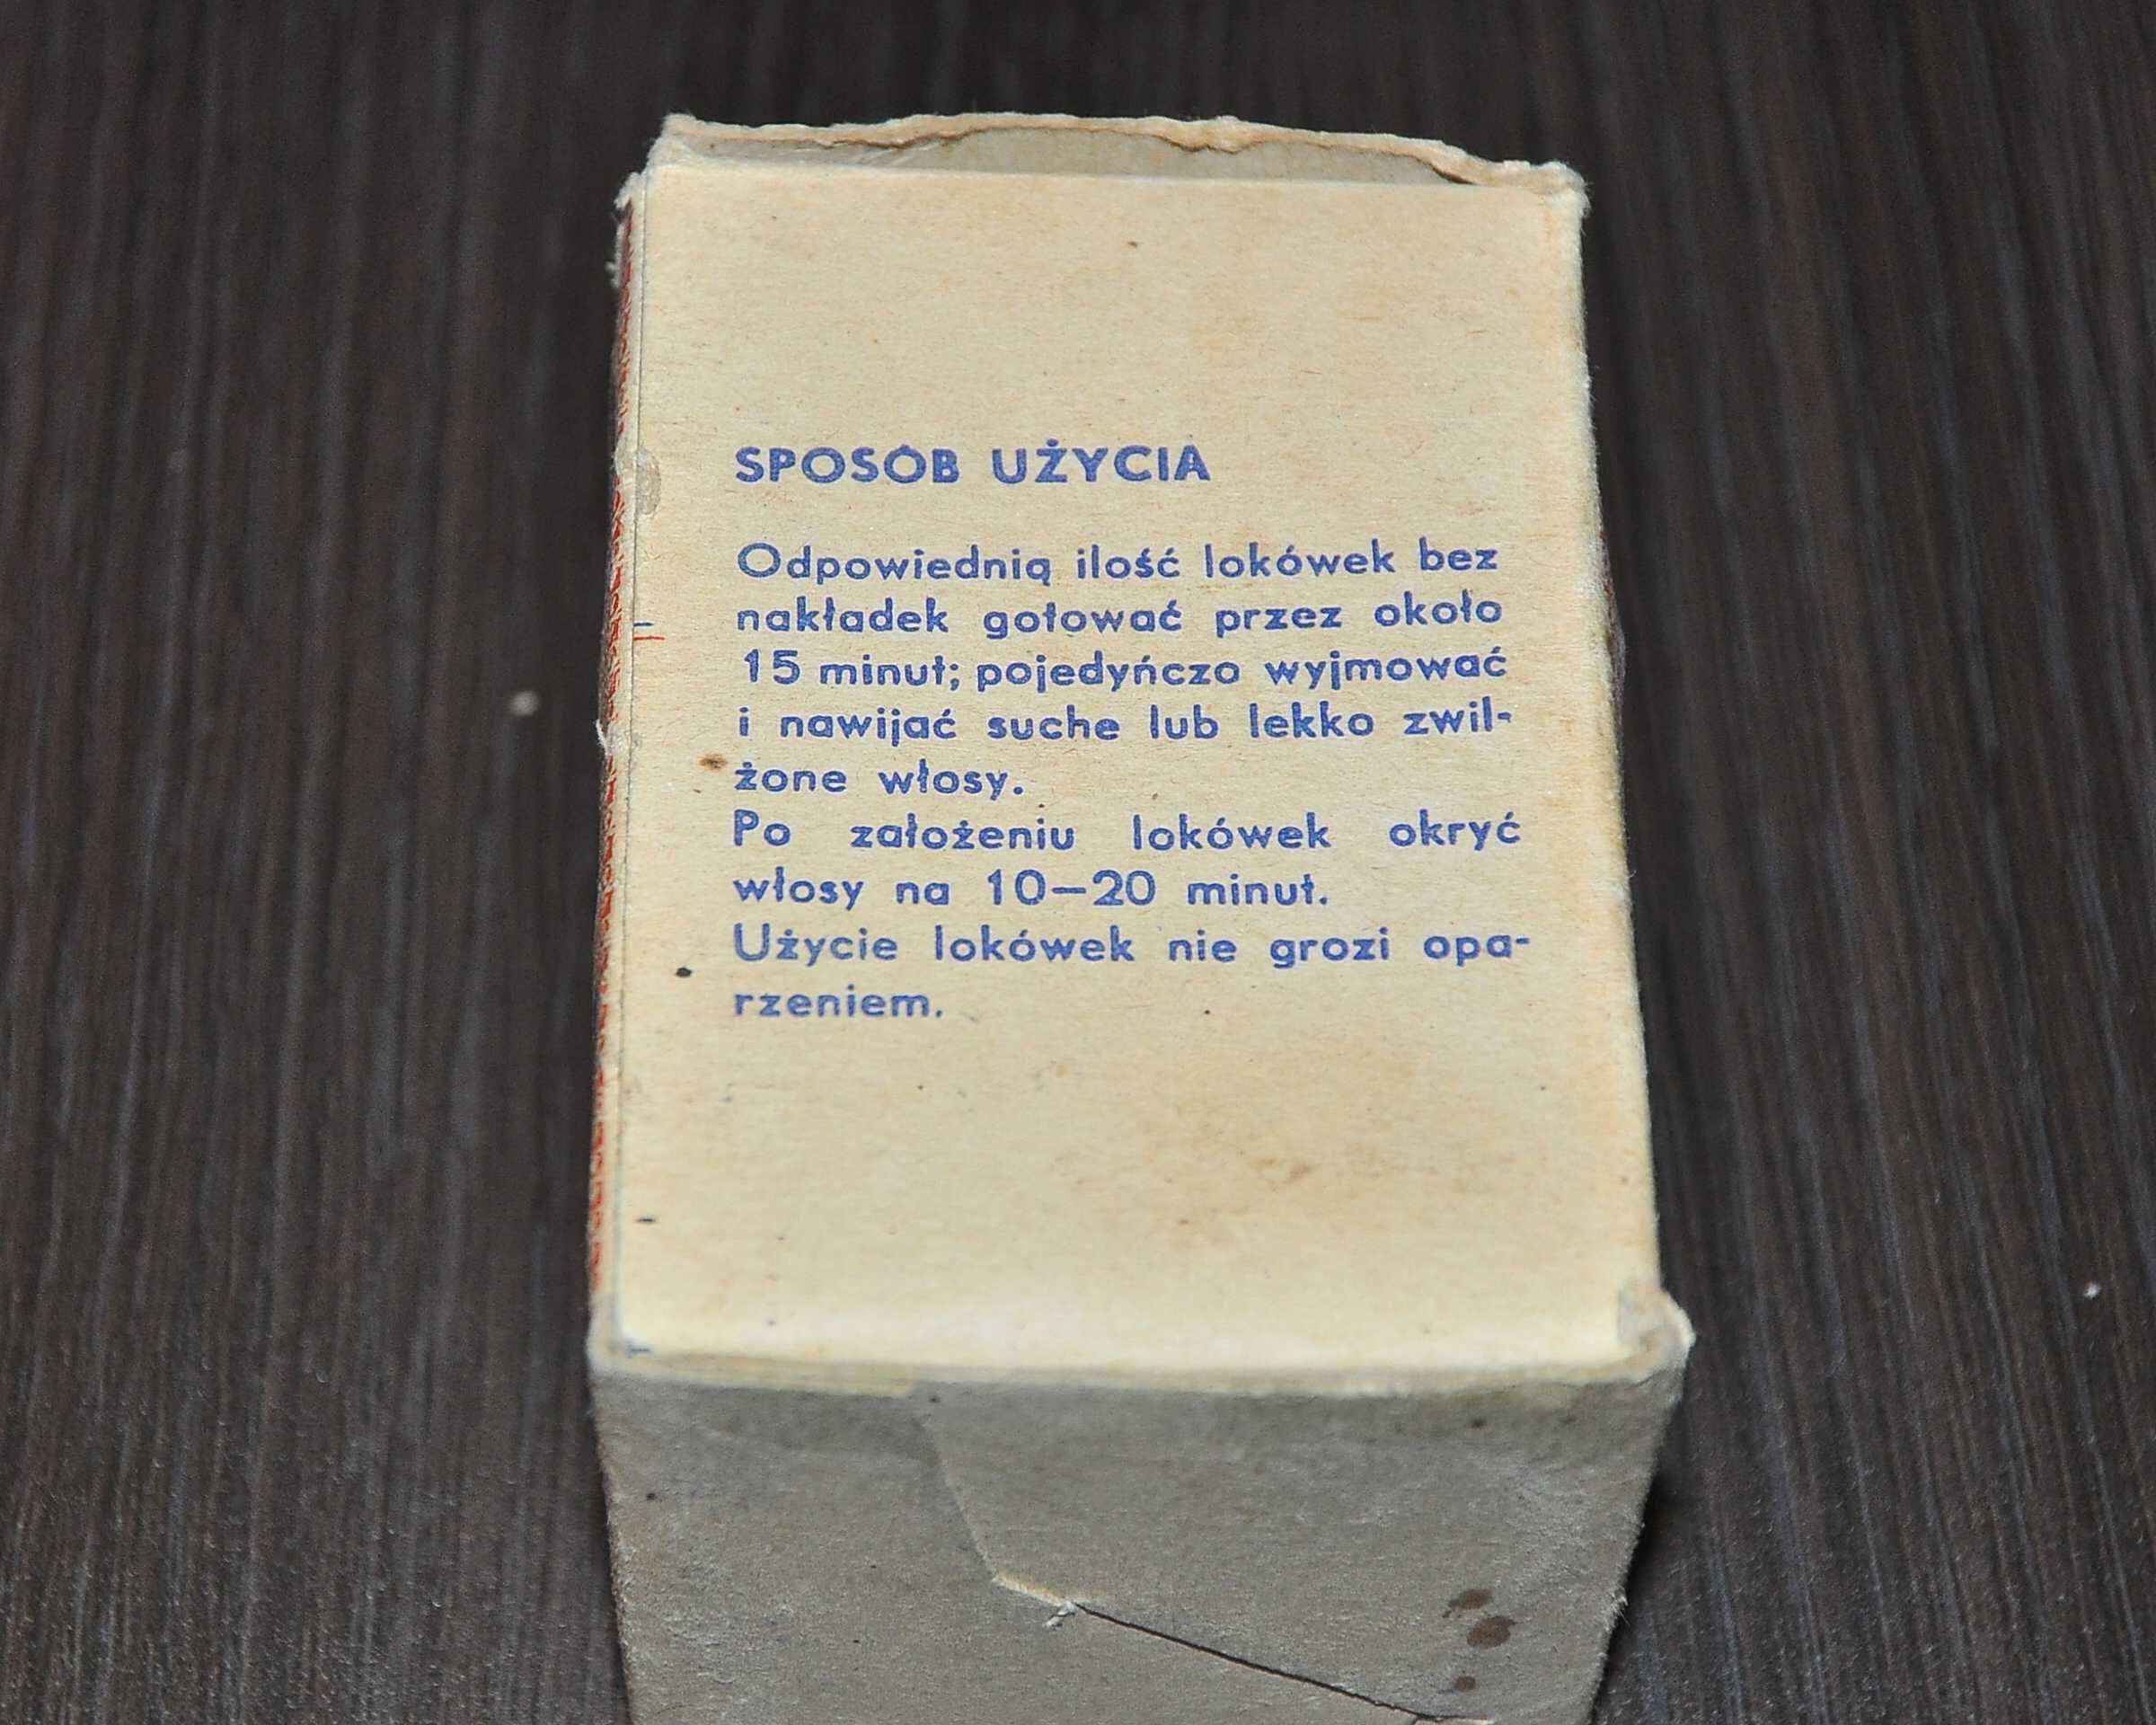 SPOSÓB UŻYCIA
Odpowiednią ilość lokówek bez
nakładek gotować przez około
15 minut; pojedyńczo wyjmować
i nawijać suche lub lekko zwil-
żone włosy.
Po założeniu lokówek okryć
włosy na 10–20 minut.
Użycie lokówek nie grozi opa-
rzeniem.